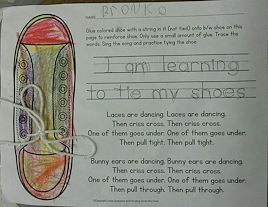 NAME BRONKO
Glue colored shoe with a string in it (not tied) onto b/w shoe on this
page to reinforce shoe. Only use a small amount of glue. Trace the
words. Sing the song and practice tying the shoe.
I am learning
to tie my shoes
Laces are dancing. Laces are dancing.
Then criss cross. Then criss cross.
One of them goes under. One of them goes under.
Then pull tight. Then pull tight.
Bunny ears are dancing. Bunny ears are dancing
Then criss cross. Then criss cross.
One of them goes under. One of them goes under.
Then pull through. Then pull through.